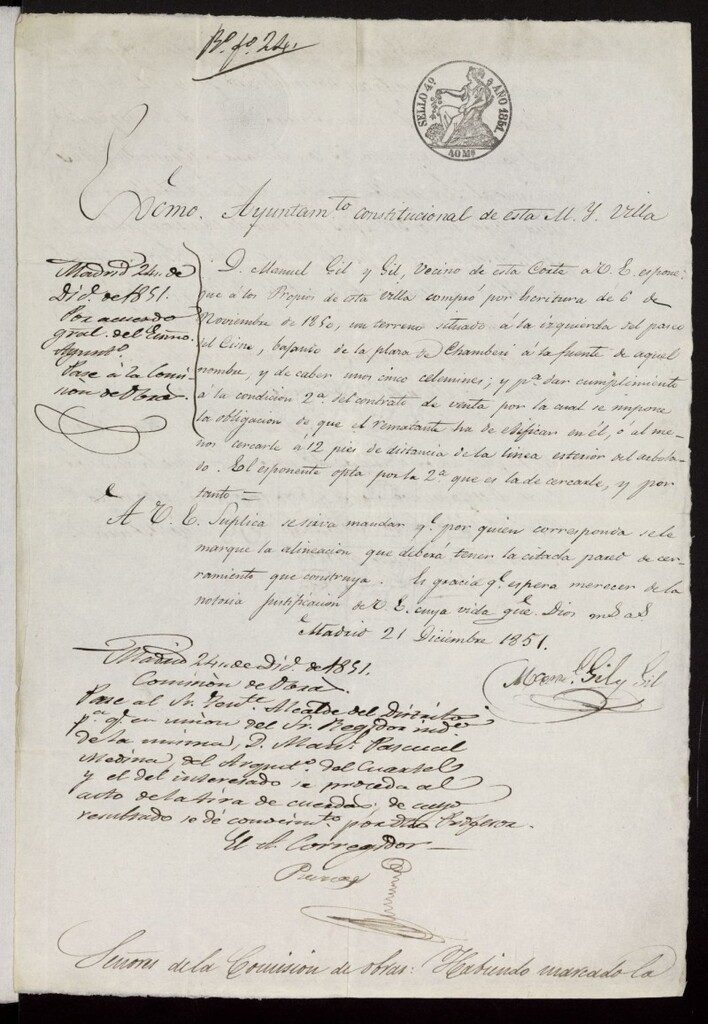 Rº. fº. 24.
SELLO 4º AÑO 1851.
40 Ms
Ecmo. Ayuntamto constitucional de esta M. Y. Villa
Madrid 24. de
Dice. de 1851.
Por acuerdo
gral. del Excmo.
Ayunto.
Pase à la Comi-
sion de Obras.
D. Manuel Gil y Gil, Vecino de esta Corte a V. E. espone:
que á los Propios de esta Villa compró por escritura de 6 de
Noviembre de 1850, un terreno situado á la izquierda del paseo
del Cisne, bajando de la plaza de Chamberi á la fuente de aquel
nombre, y de caber unos cinco celemines; y pa. dar cumplimiento
á la condicion 2ª. del contrato de venta por la cual se impone
la obligacion de que el rematante ha de edificar en él, ó al me-
nos cercarle á 12 pies de distancia de la linea esterior del arbola-
do. El esponente opta por la 2ª. que es la de cercarle, y por
tanto =
A V. E. Suplica se sirva mandar qe. por quien corresponda se le
marque la alineacion que deberá tener la citada pared de cer-
ramiento que construya. Es gracia qe. espera merecer de la
notoria justificacion de V. E. cuya vida gue. Dios ms. as.
Madrid 21 Diciembre 1851.
Manl. Gil y Gil
Madrid 24. de Dice. de 1851.
Comision de Obras.
Pase al Sr. Tente. Alcalde del Distrito
pa. qe. en union del Sr. Regidor indo.
de la misma, D. Manl. Pascual
Medina, del Arquito. del Cuartel
y el del interesado se proceda al
acto de la tira de cuerdas, de cuyo
resultado se dé conocimto. por dho Profesor.
El A. Corregidor
Señores de la Comision de obras: Habiendo marcado la